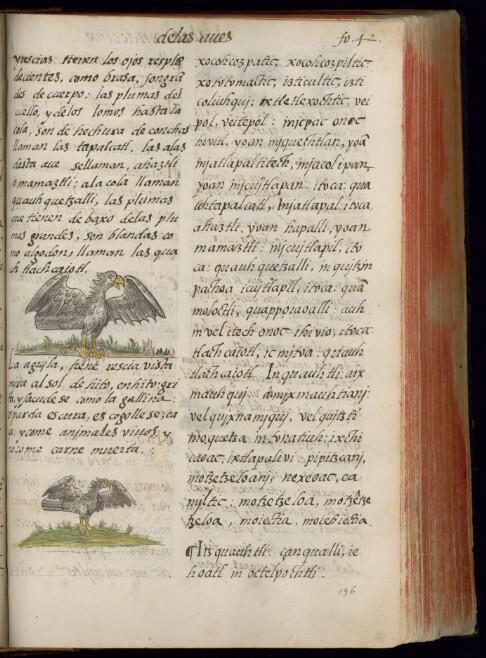 delas aues
fo. 42.
resçias: tienen los ojos resplã
deçientes, como brasa, son grã
des de cuerpo: las plumas del
cuello, y de los lomos hasta la
cola, son de hechura de conchas
llaman las tapalcatl, las alas
desta aue se llaman, ahaztli
o mamaztli: a la cola llaman
quauhquetzalli, las plumas
que tienen de baxo delas plu
mas grandes, son blandas co
mo algodon, llaman las qua
uh tlachcaiotl.
La aguila, tiene reçia vista
mira al sol de hito, en hito: gri
ta, y sacude se como la gallina:
es parda escura, es
y come animales viuos, y
no come carne muerta.
xocohcozpaltic, xocohcozpiltic:
xototomactic, itzticultic, itzti
coliuhqui: ixtletlexochtic, vei
pol, veitepol: mjcpac onoc
hivil, yoan mjquechtlan, yoã
mjatlapalitech, mjacolipan,
yoan mjcujtlapan. itoca: qua
uhtapalcatl, mjatlapal, itoca
ahaztli. yoan hapalli, yoan
mamaztli: mjcujtlapil, ito
ca: quauhquetzalli, in
icujtlapil, itoca: quã
moloctli, quappoiaoalli: auh
in vel itech onoc ihivio, itoca:
tlachcaiotl, ic mjtoa: quauh
tlachcaiotl. In quauhtli: aix
mauhqui: amjxmauhtianj:
vel quixnamjquj, vel quitzti
moquetza in tonatiuh: ixchi
caoac, ixtlapalivi: pipitzcanj,
motzetzeloanj, nexeoac, ca
mjltic: motzetzeloa, motzêtze
tzeloa, moiectia, moiehiectia.
¶ Itzquauhtli: çan quallj, ie
hoatl in oc telpochtli.
196